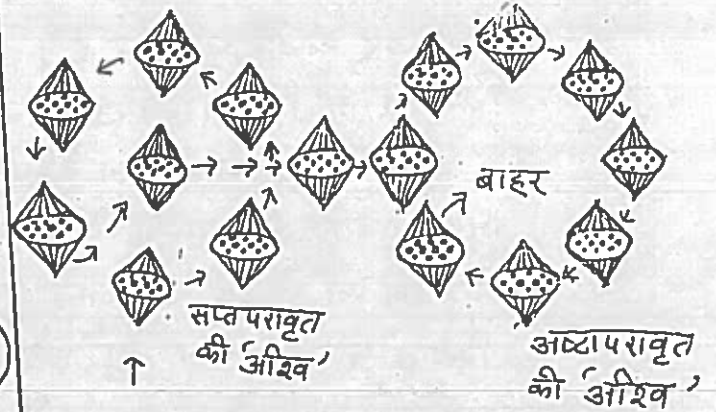 बाहर
सप्तपरावृत
की 'अश्वि'
अष्टापरावृत
की 'अश्वि'